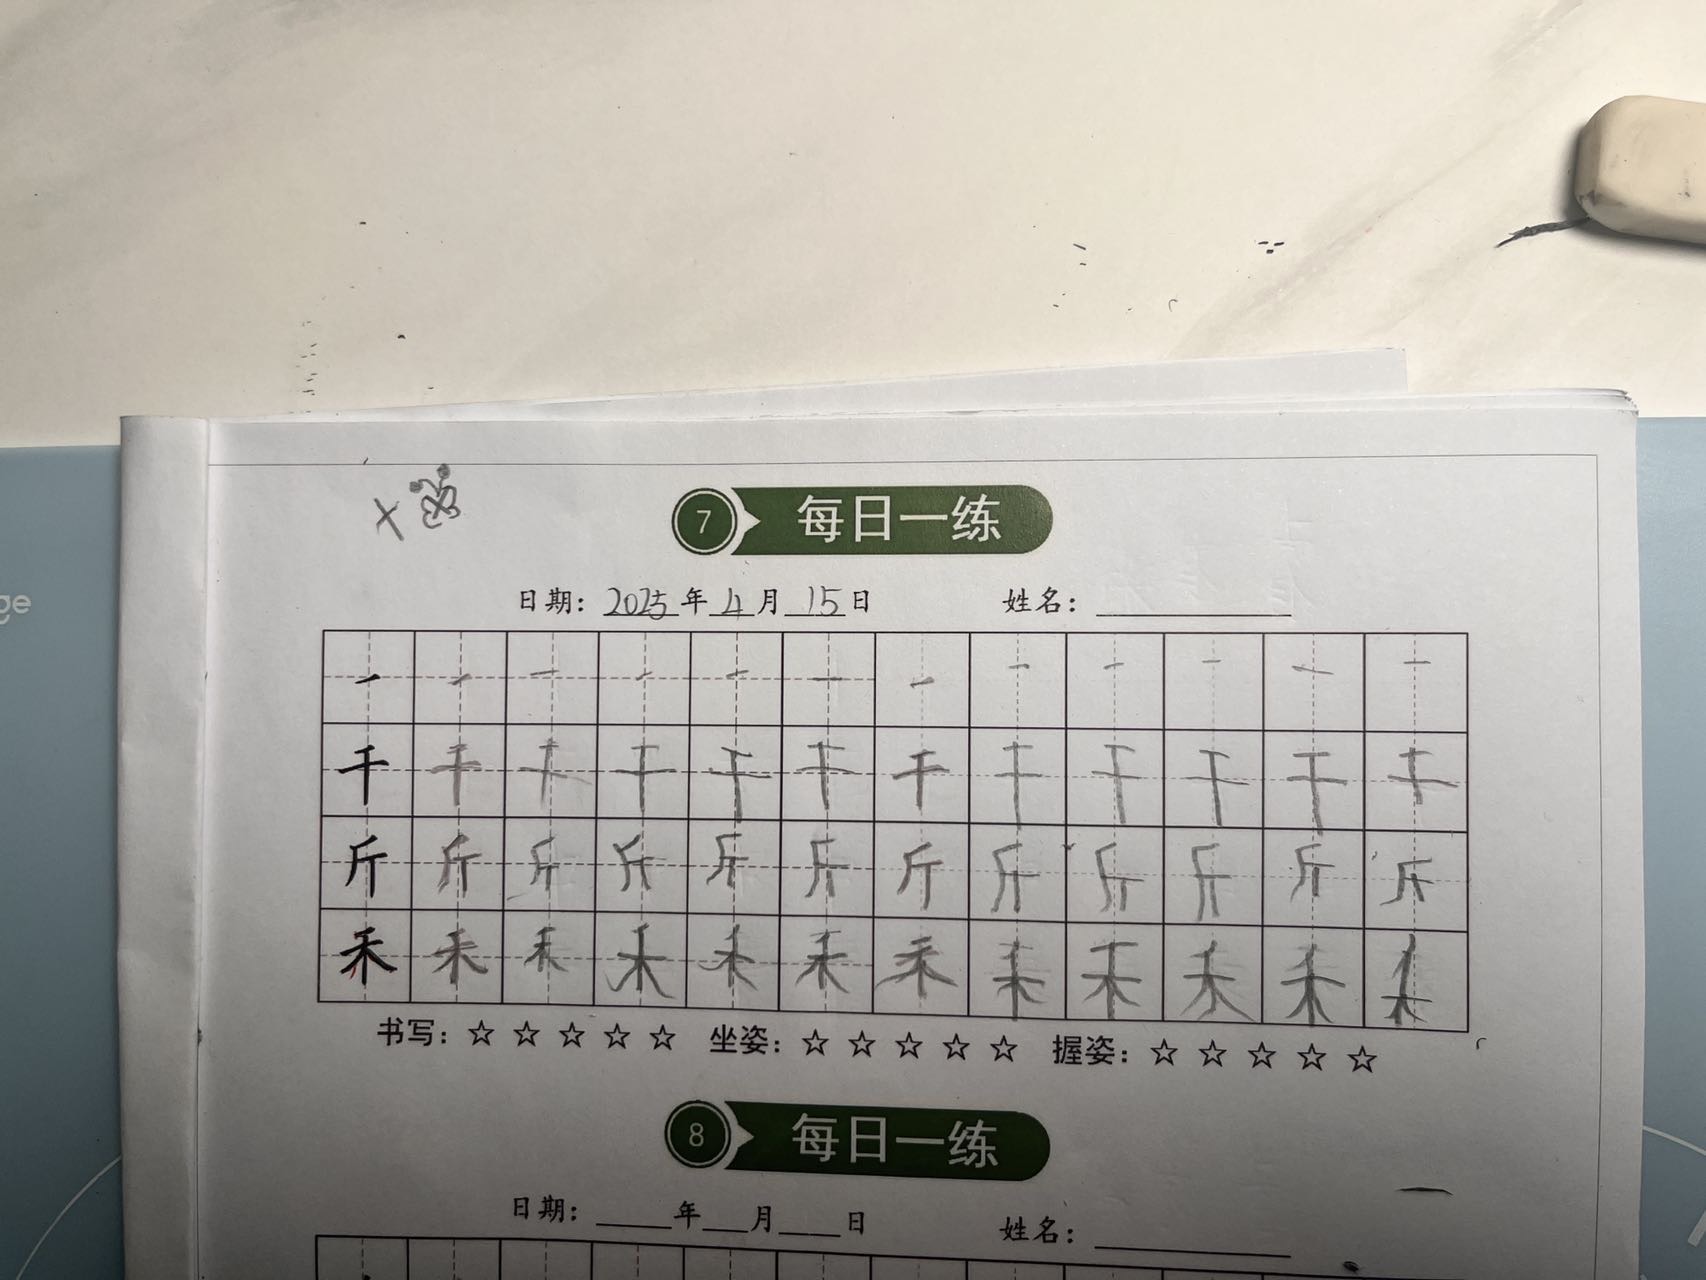 7 每日一练
日期：2025年4月15日 姓名：
千 千 千 千 千 千 千 千 千 千 千 千
斤 斤 斤 斤 斤 斤 斤 斤 斤 斤 斤 斤
禾 禾 禾 禾 禾 禾 禾 禾 禾 禾 禾 禾
书写：☆☆☆☆☆ 坐姿：☆☆☆☆☆ 握姿：☆☆☆☆☆
8 每日一练
日期：____年___月____日 姓名：
ge